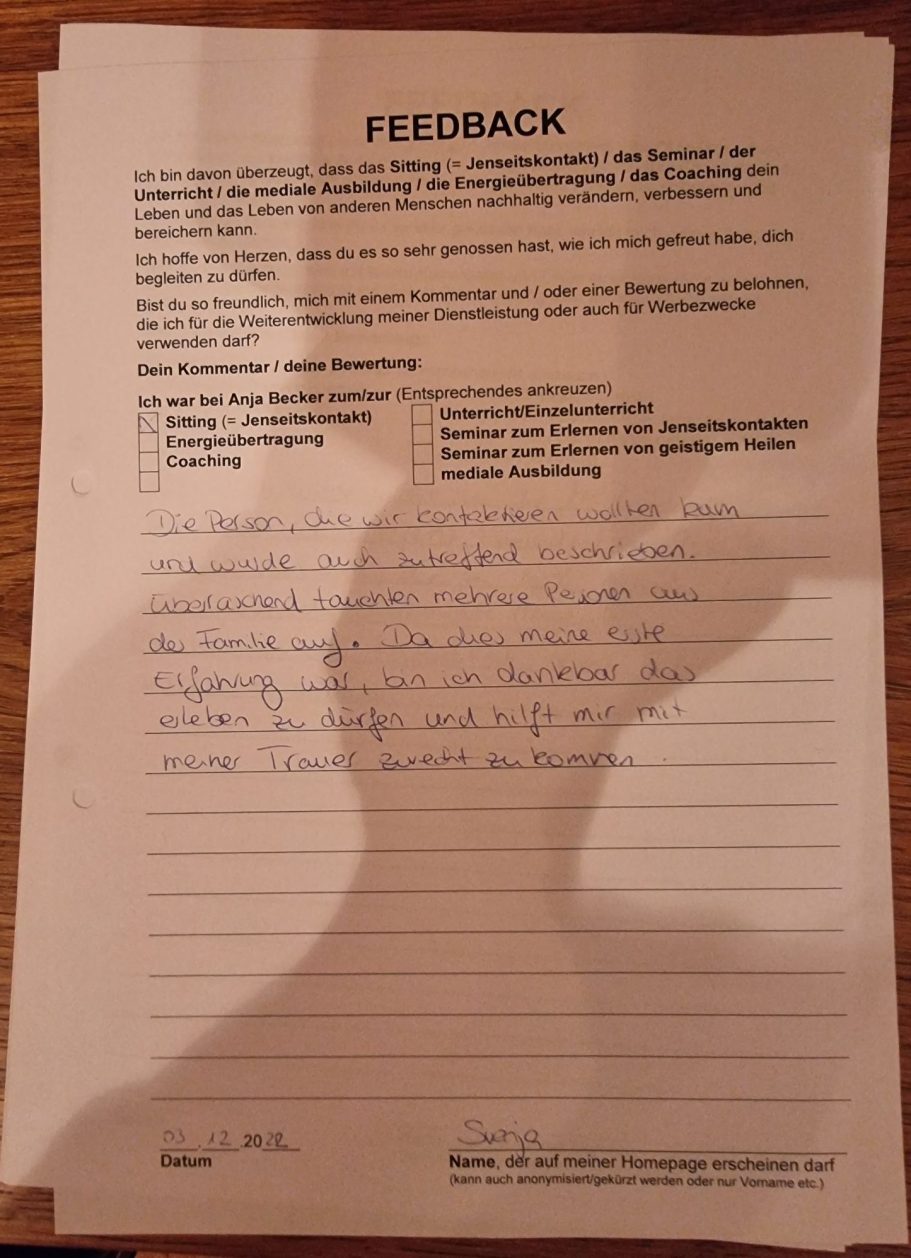 FEEDBACK
Ich bin davon überzeugt, dass das Sitting (= Jenseitskontakt) / das Seminar / der
Unterricht / die mediale Ausbildung / die Energieübertragung / das Coaching dein
Leben und das Leben von anderen Menschen nachhaltig verändern, verbessern und
bereichern kann.
Ich hoffe von Herzen, dass du es so sehr genossen hast, wie ich mich gefreut habe, dich
begleiten zu dürfen.
Bist du so freundlich, mich mit einem Kommentar und / oder einer Bewertung zu belohnen,
die ich für die Weiterentwicklung meiner Dienstleistung oder auch für Werbezwecke
verwenden darf?
Dein Kommentar / deine Bewertung:
Ich war bei Anja Becker zum/zur (Entsprechendes ankreuzen)
Sitting (= Jenseitskontakt)
Energieübertragung
Coaching
Unterricht/Einzelunterricht
Seminar zum Erlernen von Jenseitskontakten
Seminar zum Erlernen von geistigem Heilen
mediale Ausbildung
Die Person, die wir kontaktieren wollten kam
und wurde auch zutreffend beschrieben.
überraschend tauchten mehrere Personen aus
der Familie auf. Da dies meine erste
Erfahrung war, bin ich dankbar das
erleben zu dürfen und hilft mir mit
meiner Trauer zurecht zu kommen.
03.12.2022
Datum
Svenja
Name, der auf meiner Homepage erscheinen darf
(kann auch anonymisiert/gekürzt werden oder nur Vorname etc.)